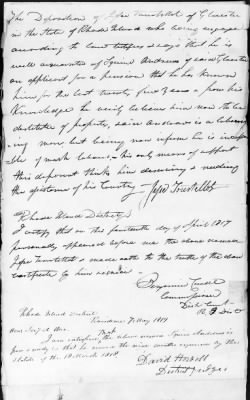 The Deposition of Jesse Tourtellot of Glocester
in the State of Rhode Island who being engaged
according to Law testifies & says that he is
well acquainted of Squire Andrews of said Glocester
an applicant for a pension that he has known
him for the last twenty five years & from his
Knowledge he verily believes him now to be
destitute of property, said Andrews is a labour-
ing man but being now infirm he is incapa-
ble of much labour & his only means of support
this deponent thinks him deserving & needing
the assistance of his Country — Jesse Tourtellot
Rhode Island District
I certify that on this day of April 1819
personally appeared before me the above named
Jesse Tourtellot & made oath to the truth of the above
certificate by him
Commissioner
Dist Court
R I Dist
Rhode Island District
Providence 7 May 1819
I am satisfied, that the above named Squire Andrews is
in need of
statute of the 18 March 1818.
David Howell
District Judge